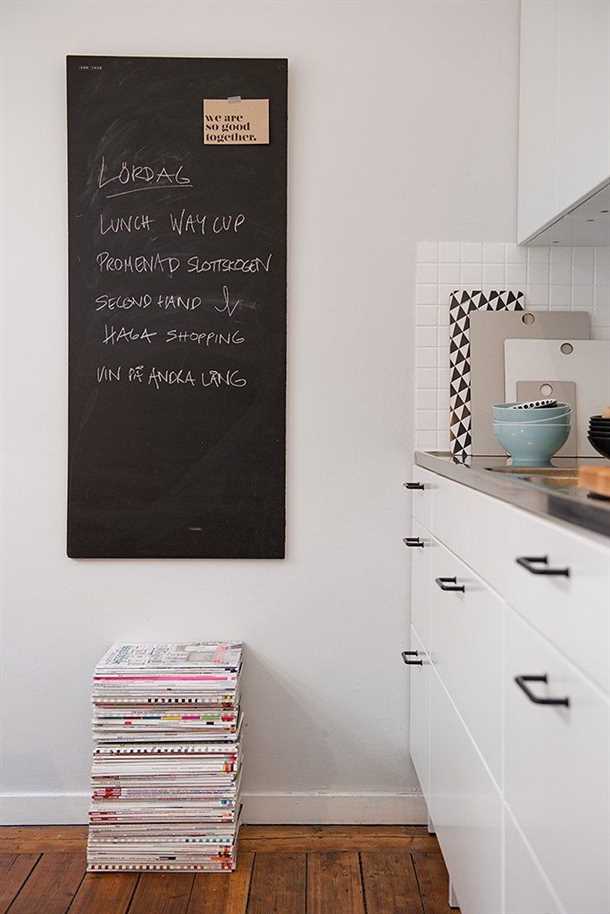 we are
so good
together.
LÖRDAG
LUNCH WAY CUP
PROMENAD SLOTTSKOGEN
SECOND HAND
HAGA SHOPPING
VIN PÅ ANDRA LÅNG